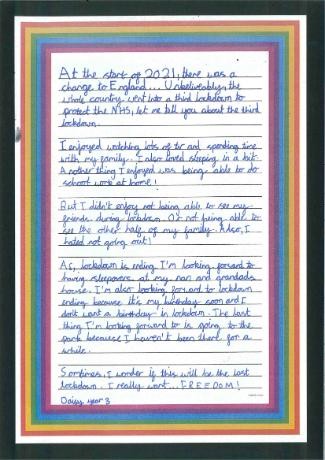 At the start of 2021, there was a
change to England... Unbelievably, the
whole country went into a third lockdown to
protect the NHS, let me tell you about the third
lockdown.
I enjoyed watching lots of tv and spending time
with my family. I also loved sleeping in a bit.
Another thing I enjoyed was being able to do
school work at home!
But I didn't enjoy not being able to see my
friends during lockdown. Or not being able to
see the other half of my family. Also, I
hated not going out!
As, lockdown is ending I'm looking forward to
having sleepovers at my nan and grandads
house. I'm also looking forward to lockdown
ending because it's my birthday soon and I
don't want a birthday in lockdown. The last
thing I'm looking forward to is going to the
park because I haven't been there for a
while.
Sometimes, I wonder if this will be the last
lockdown. I really want... FREEDOM!
Daisy year 3